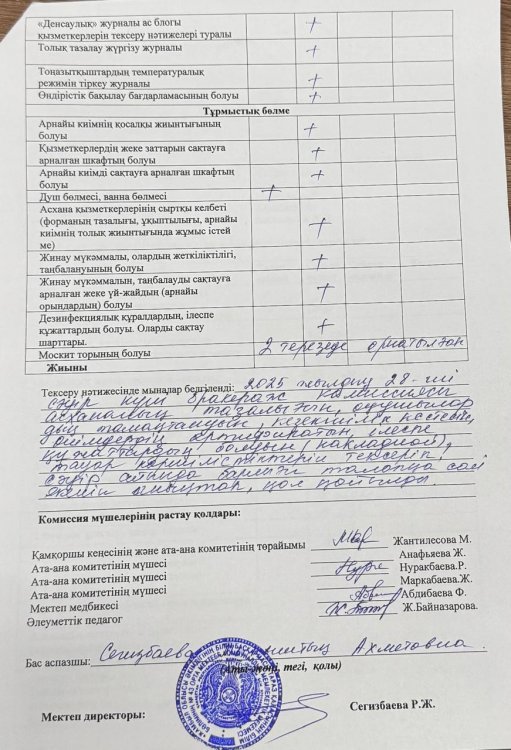 «Денсаулық» журналы ас блогы
қызметкерлерін тексеру нәтижелері туралы +
Толық тазалау жүргізу журналы +
Тоңазытқыштардың температуралық
режимін тіркеу журналы +
Өндірістік бақылау бағдарламасының болуы +
Тұрмыстық бөлме
Арнайы киімнің қосалқы жиынтығының
болуы +
Қызметкерлердің жеке заттарын сақтауға
арналған шкафтың болуы +
Арнайы киімді сақтауға арналған шкафтың
болуы +
Душ бөлмесі, ванна бөлмесі +
Асхана қызметкерлерінің сыртқы келбеті
(форманың тазалығы, ұқыптылығы, арнайы
киімнің толық жиынтығында жұмыс істей
ме) +
Жинау мүкәммалы, олардың жеткіліктілігі,
таңбалануының болуы +
Жинау мүкәммалын, таңбалауды сақтауға
арналған жеке үй-жайдың (арнайы
орындардың) болуы +
Дезинфекциялық құралдардың, ілеспе
құжаттардың болуы. Оларды сақтау
шарттары. +
Москит торының болуы 2 терезеде орнатылған
Жиыны
Тексеру нәтижесінде мыналар белгіленді: 2025 жылдың 28-ші
сәуір күні бракераж комиссиясы
асхананың тазалығын, оқушылар
дың тамақтануын, кезекшілік кестесін,
өнімдердің сертификатын ілеспе
құжаттардың болуын (накладной),
тауар көршілестіктерін тексеріп,
сәуір айында барлығы талапқа сай
екенін анықтап, қол қойылды.
Комиссия мүшелерінің растау қолдары:
Қамқоршы кеңесінің және ата-ана комитетінің төрайымы Жантилесова М.
Ата-ана комитетінің мүшесі Анафьяева Ж.
Ата-ана комитетінің мүшесі Нуракбаева.Р.
Ата-ана комитетінің мүшесі Маркабаева.Ж.
Мектеп медбикесі Аблибаева Ф.
Әлеуметтік педагог Ж.Байназарова.
Бас аспазшы: Сегизбаева Ахметовна.
(Аты-жөні, тегі, қолы)
Мектеп директоры: Сегизбаева Р.Ж.